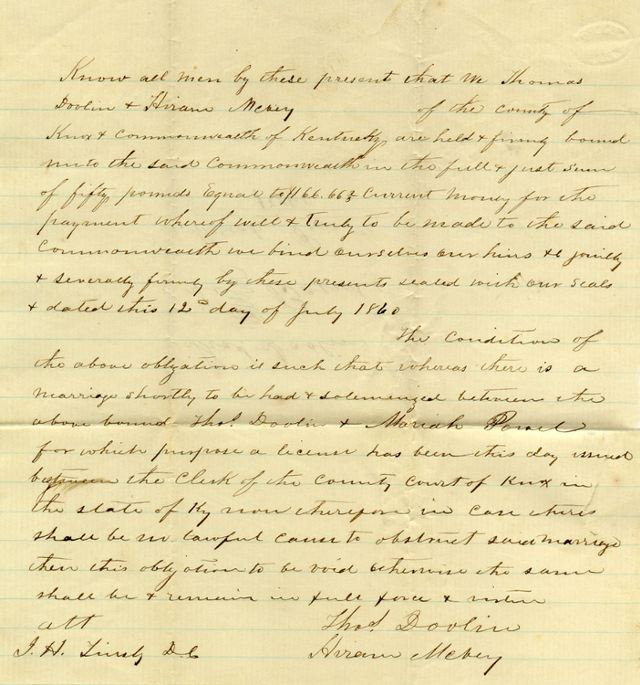 Know all men by these present that We Thomas
Dovlin & Hiram McVey of the county of
Knox & Commonwealth of Kentucky are held & firmly bound
unto the said Commonwealth in the full & just Sum
of fifty pounds Equal to $166.66⅔ Current Money for the
payment whereof well & truly to be made to the said
Commonwealth we bind ourselves our heirs &c jointly
& severally firmly by these presents sealed with our Seals
& dated this 12th day of July 1860
The Condition of
the above obligation is such that whereas there is a
marriage shortly to be had & solemnized between the
above bound Thos. Dovlin & Mariah
for which purpose a license has been this day issued
between the Clerk of the County Court of Knox in
the state of Ky now therefore in case there
shall be no lawful cause to obstruct said marriage
then this obligation to be void otherwise the same
shall be & remain in full force & virtue
att Thos. Dovlin
J. H. D.C Hiram McVey